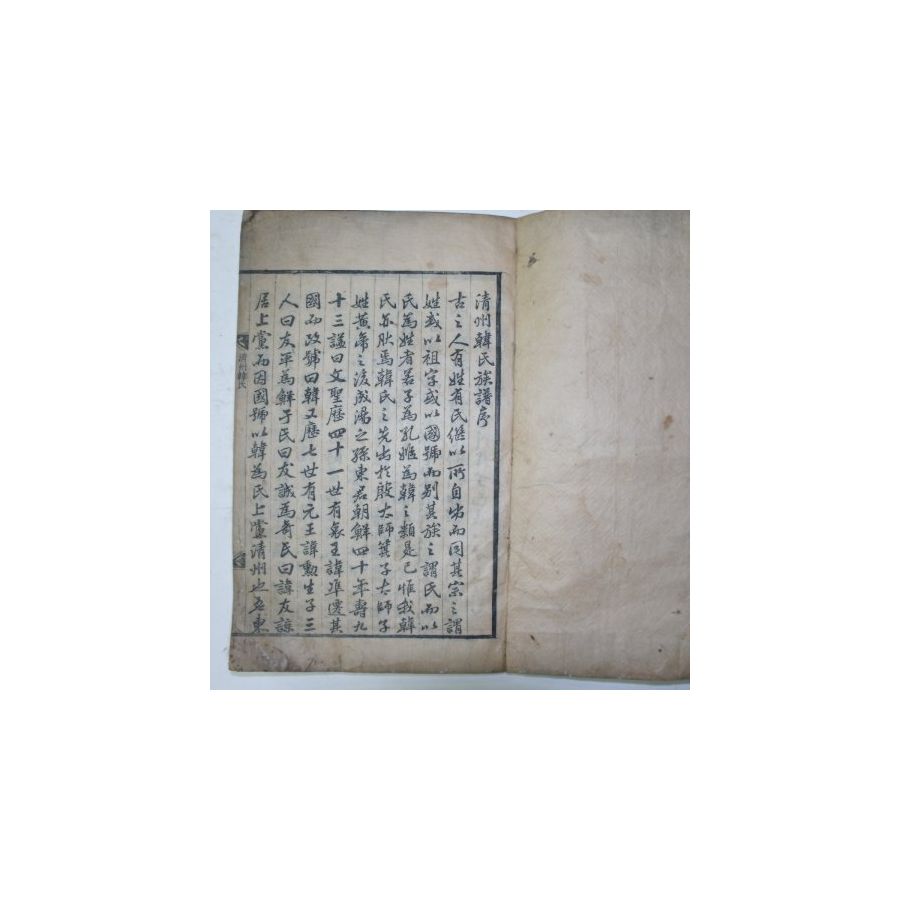 清州韓氏族譜序
古之人有姓有氏繼以所自出而同其宗之謂
姓或以祖字或以國號而別其族之謂氏而以
氏為姓者若子為孔姬為韓之類是已惟我韓
氏亦 焉韓氏之先出於殷太師箕子太師子
姓黃帝之後成湯之孫東君朝鮮四十年壽九
十三諡曰文聖歷四十一世有哀王諱準遷其
國而改號曰韓又歷七世有元王諱勳生子三
人曰友平為鮮于氏曰友誠為奇氏曰諱友諒
居上黨而因國號以韓為氏上黨清州也 東
清州韓氏